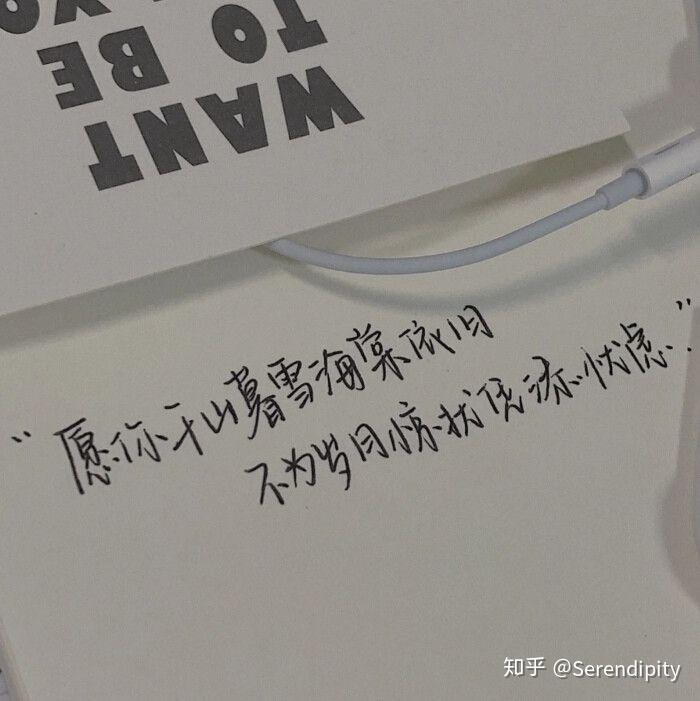 YO
TO BE
WANT
“愿你千山暮雪海棠依旧
不为岁月惊扰凭添忧虑”
知乎 @Serendipity